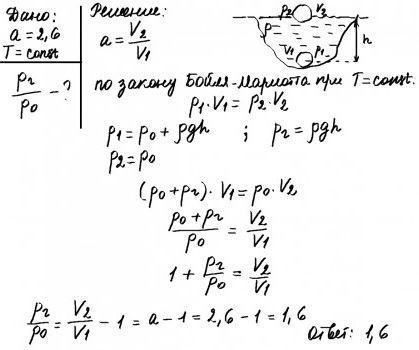 Дано:
a = 2,6
T = const
pг/p0 - ?
Решение:
a = V2/V1
p2 V2
p
V1 p1
h
по закону Бойля-Мариотта при T = const.
p1 · V1 = p2 · V2
p1 = p0 + ρgh ; pг = ρgh
p2 = p0
(p0 + pг) · V1 = p0 · V2
(p0 + pг)/p0 = V2/V1
1 + pг/p0 = V2/V1
pг/p0 = V2/V1 - 1 = a - 1 = 2,6 - 1 = 1,6
Ответ: 1,6